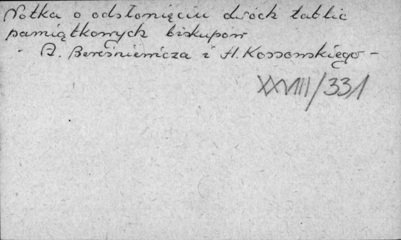 Notka o odsłonięciu dwóch tablic
pamiątkowych biskupów
A. Bereśniewicza i H. Kossowskiego -
XXVIII/331